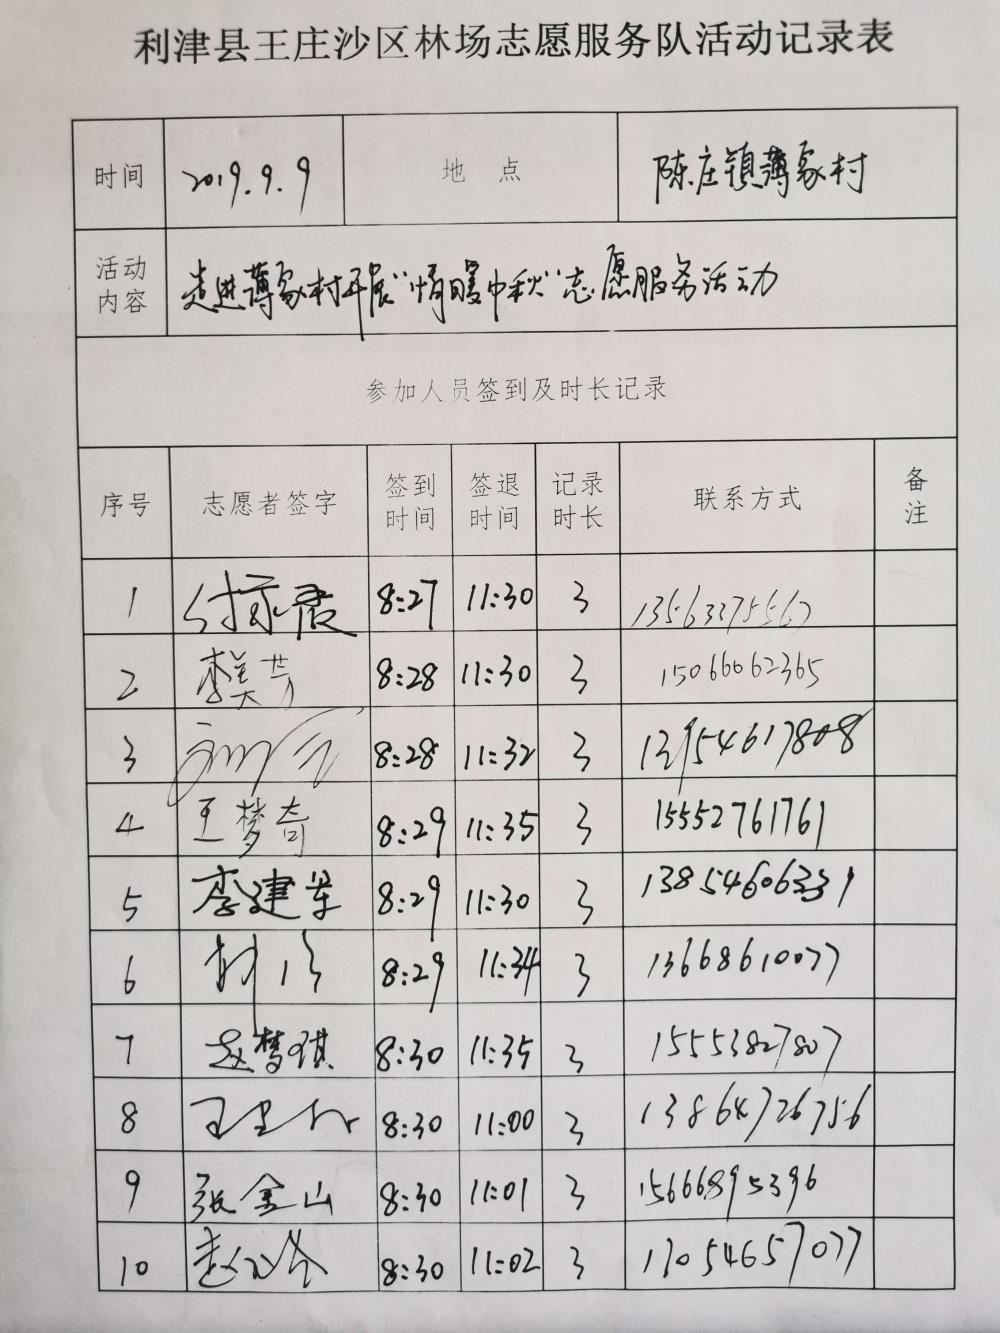 利津县王庄沙区林场志愿服务队活动记录表
时间 2019.9.9 地 点 陈庄镇薄家村
活动内容 走进薄家村开展“情暖中秋”志愿服务活动
参加人员签到及时长记录
序号 志愿者签字 签到时间 签退时间 记录时长 联系方式 备注
1 8:27 11:30 3
2 李美芳 8:28 11:30 3 15066062365
3 8:28 11:32 3 13954617808
4 王梦奇 8:29 11:35 3 15552761761
5 李建军 8:29 11:30 3 13854606331
6 8:29 11:34 3 13668610077
7 赵梦琪 8:30 11:35 3 15553827807
8 8:30 11:00 3 13864726756
9 张金山 8:30 11:01 3 15666895396
10 8:30 11:02 3 17054657077